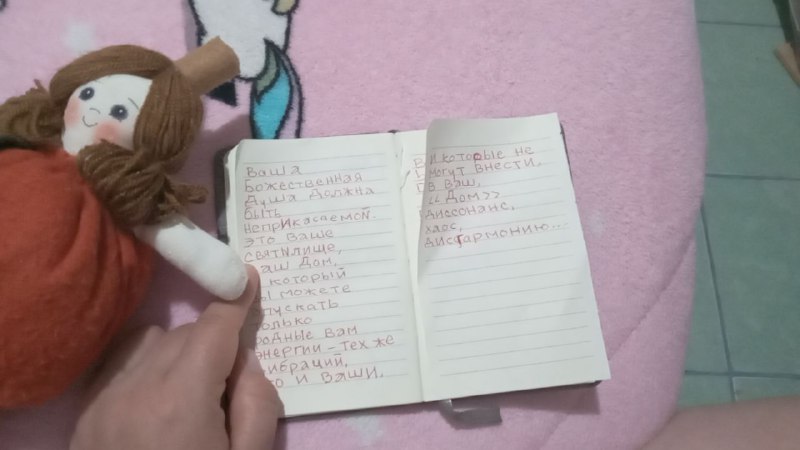 Ваша
Божественная
Душа Должна
быть
неприкасаемой.
это Ваше
святилище,
аш Дом,
который
ы можете
пускать
только
родные вам
энергии – тех же
ибраций,
то и Ваши,
И которые не
могут Внести,
в Ваш,
«Дом»
диссонанс,
хаос,
дисгармонию...